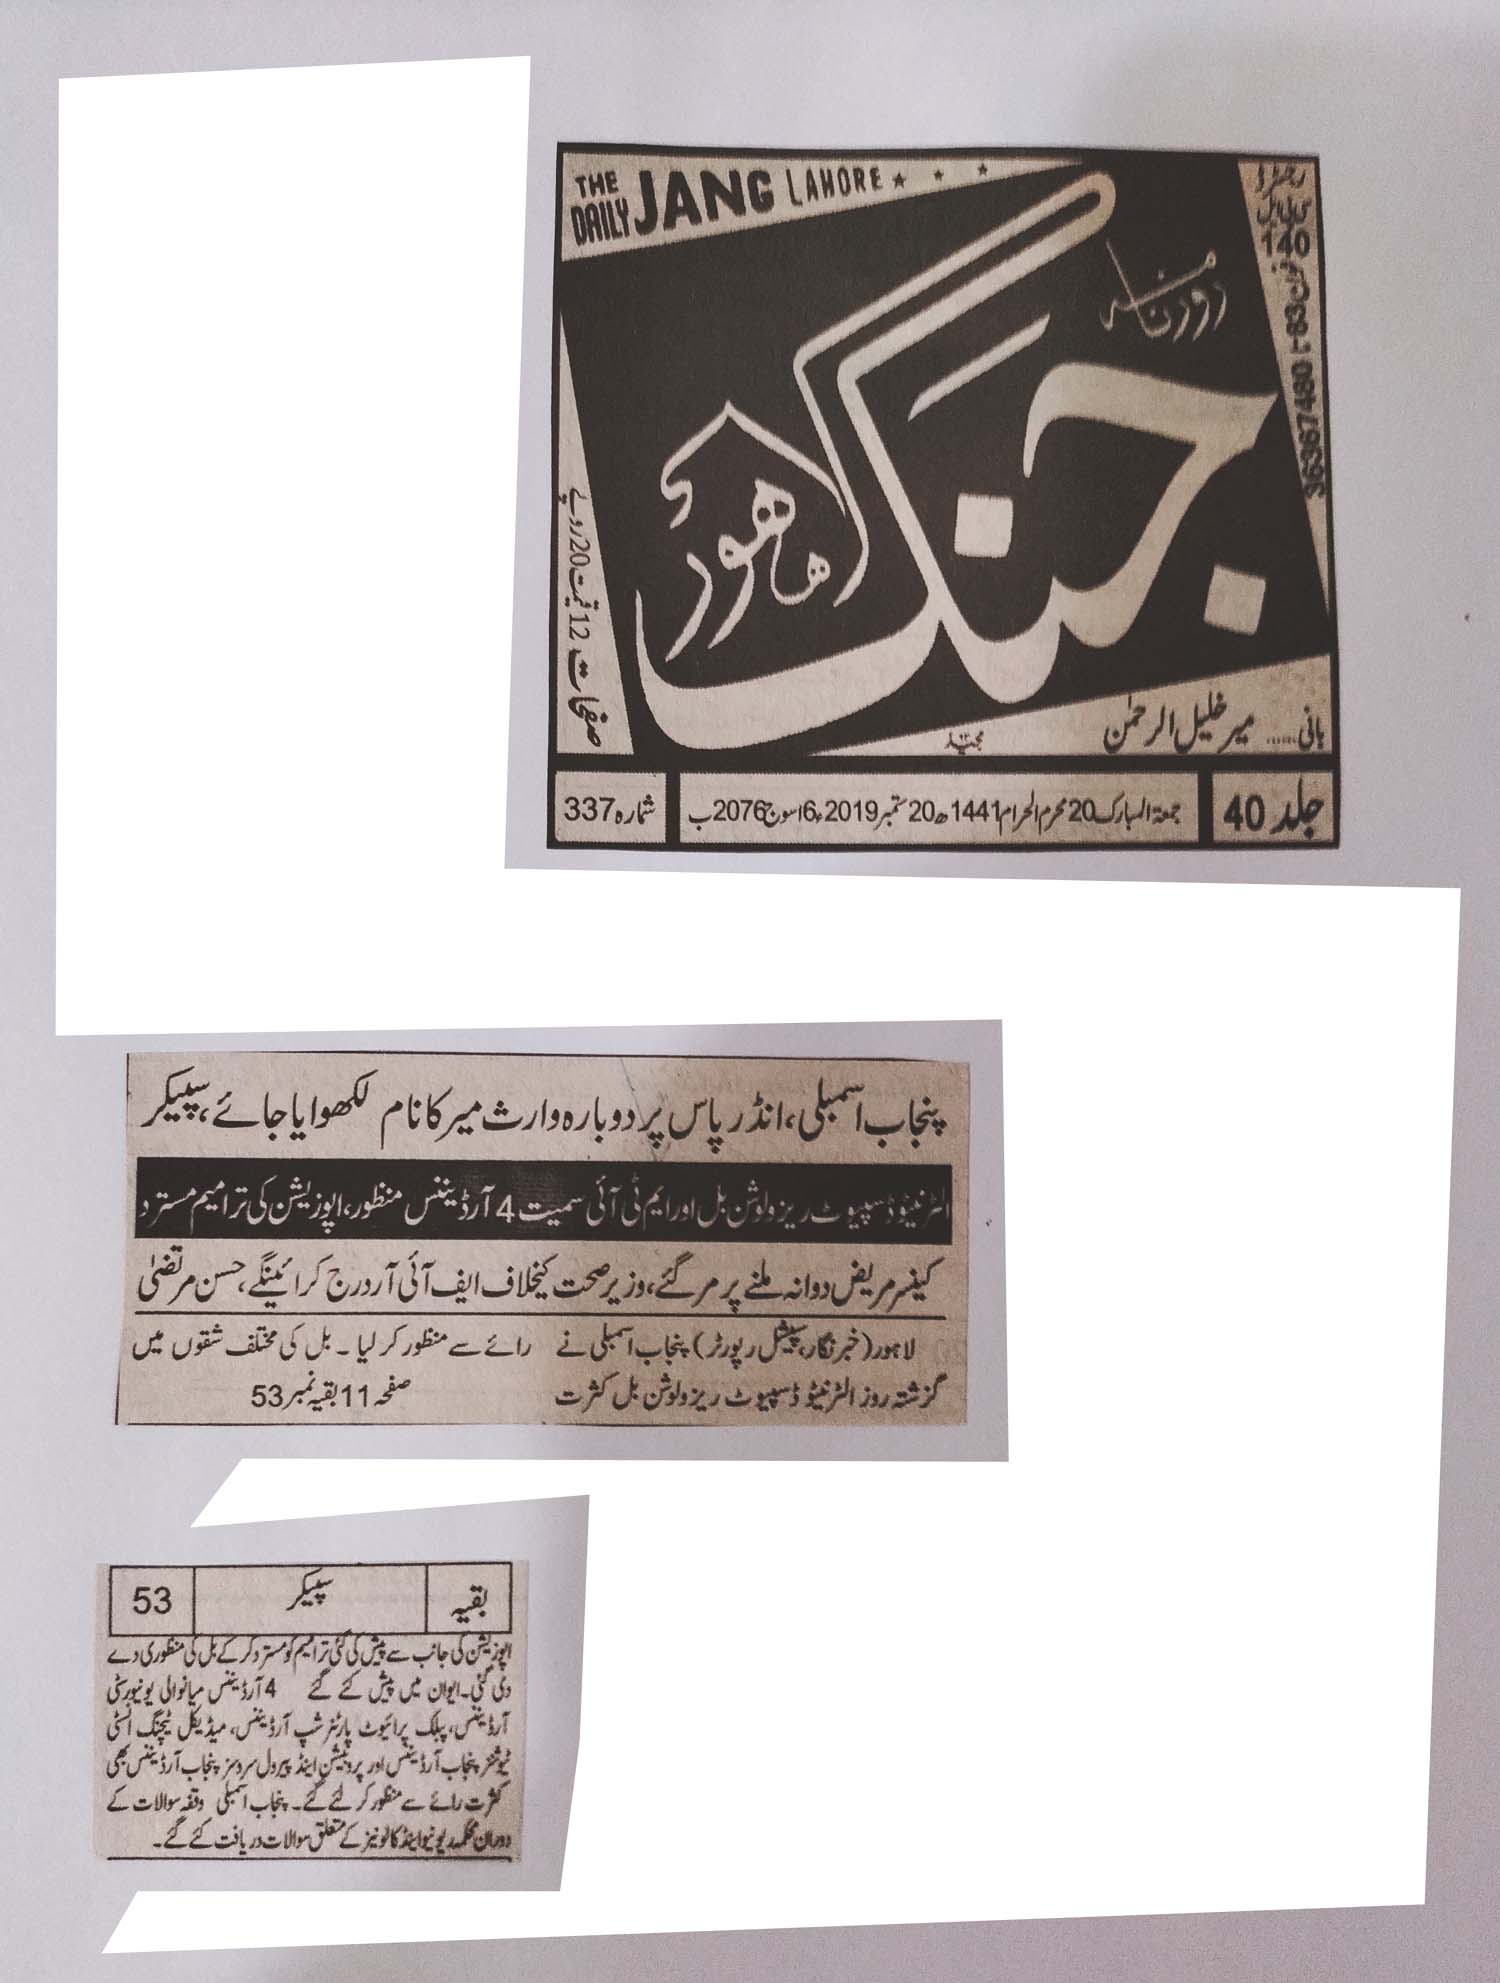 THE DAILY JANG LAHORE
رجسٹرڈ
سی پی ایل
140
فون 83-36367480
روزنامہ
جنگ
لاہور
صفحات 12 قیمت 20 روپے
بانی...... میر خلیل الرحمٰن
جلد 40
جمعۃ المبارک 20 محرم الحرام 1441ھ 20 ستمبر 2019ء 6 اسوج 2076 ب
شمارہ 337
پنجاب اسمبلی، انڈر پاس پر دوبارہ وارث میر کا نام لکھوایا جائے، سپیکر
الٹرنیٹو ڈسپیوٹ ریزولوشن بل اور ایم ٹی آئی سمیت 4 آرڈیننس منظور، اپوزیشن کی ترامیم مسترد
کینسر مریض دوا نہ ملنے پر مر گئے، وزیر صحت کیخلاف ایف آئی آر درج کرائینگے، حسن مرتضیٰ
لاہور (خبر نگار، سپیشل رپورٹر) پنجاب اسمبلی نے
گزشتہ روز الٹرنیٹو ڈسپیوٹ ریزولوشن بل کثرت
رائے سے منظور کر لیا ۔ بل کی مختلف شقوں میں
صفحہ 11 بقیہ نمبر 53
بقیہ سپیکر 53
اپوزیشن کی جانب سے پیش کی گئی ترامیم کو مسترد کر کے بل کی منظوری دے
دی گئی۔ ایوان میں پیش کئے گئے 4 آرڈیننس میانوالی یونیورسٹی
آرڈیننس، پبلک پرائیوٹ پارٹنر شپ آرڈیننس، میڈیکل ٹیچنگ انسٹی
ٹیوشنز پنجاب آرڈیننس اور پروبیشن اینڈ پیرول سروسز پنجاب آرڈیننس بھی
کثرت رائے سے منظور کر لئے گئے۔ پنجاب اسمبلی وقفہ سوالات کے
دوران محکمہ ریونیو اینڈ کالونیز کے متعلق سوالات دریافت کئے گئے ۔